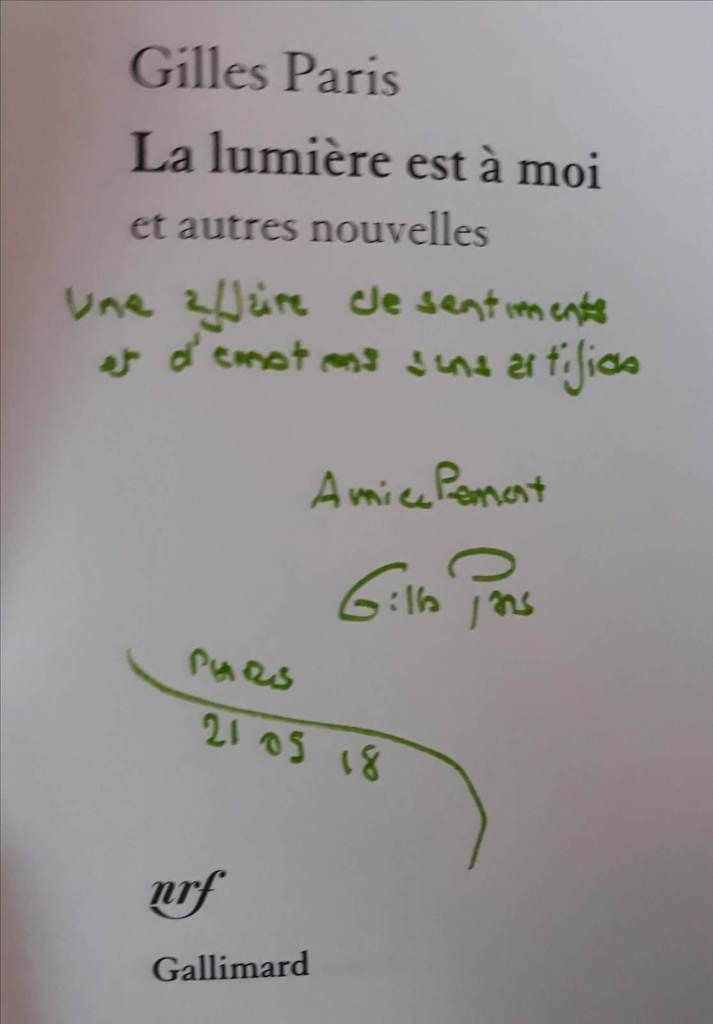 Gilles Paris
La lumière est à moi
et autres nouvelles
Une affaire de sentiments
et d'émotions sans artifices
Amicalement
Gilles Paris
PARIS
21 05 18
nrf
Gallimard